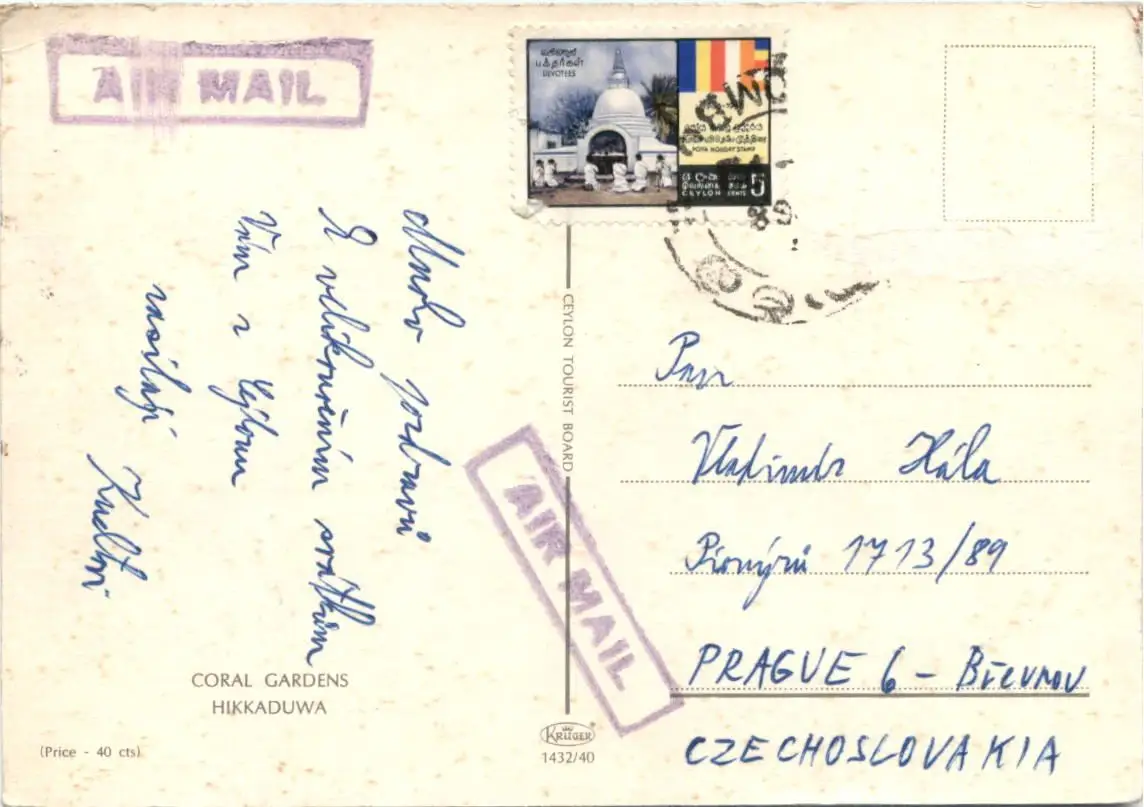 AIR MAIL
DEVOTEES
POYA HOLIDAY STAMP
CEYLON CENTS 5
Mnoho pozdravů
k velikonočním svátkům
Vám z Cejlonu
zasílají
CEYLON TOURIST BOARD
AIR MAIL
Pan
Vladimír Hála
Pionýrů 1713/89
PRAGUE 6 - Břevnov
CZECHOSLOVAKIA
CORAL GARDENS
HIKKADUWA
(Price - 40 cts)
KRÜGER
1432/40